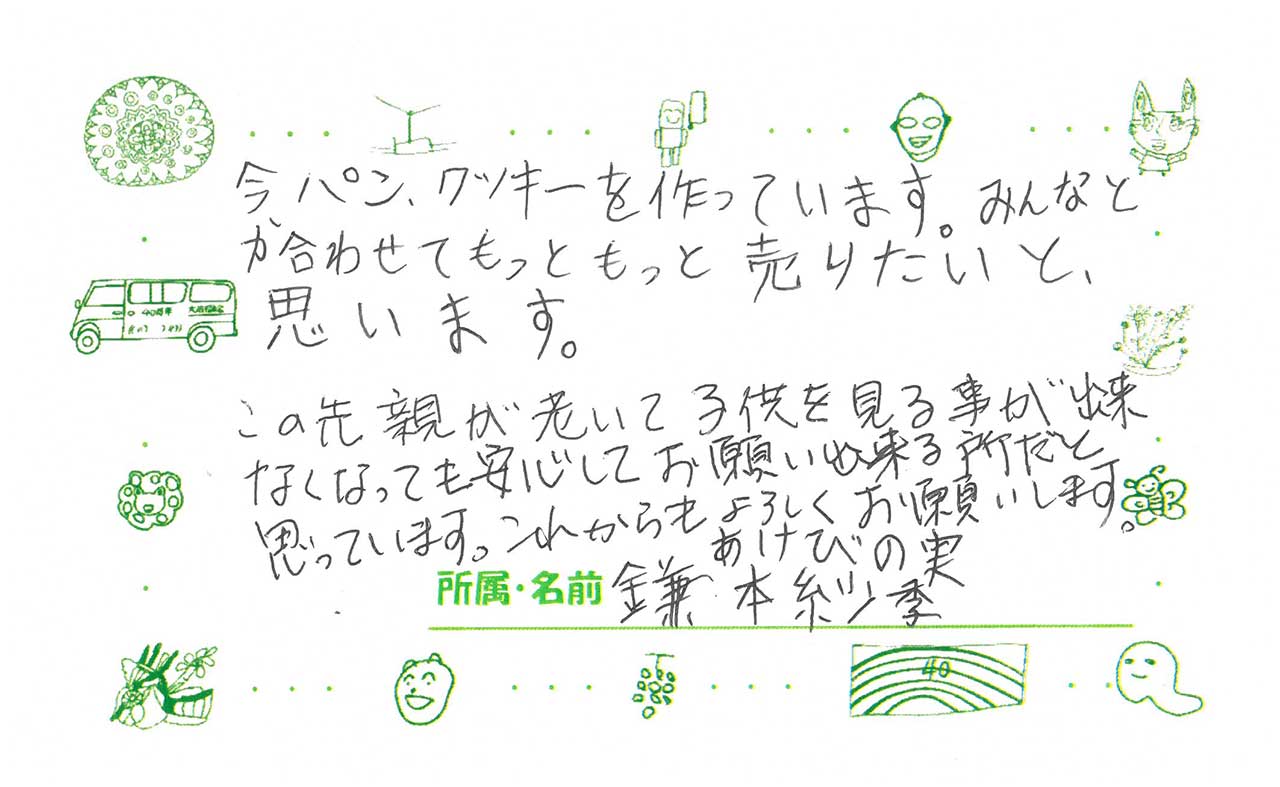 今パン、クッキーを作っています。みんなと
か合わせてもっともっと売りたいと、
思います。
この先親が老いて子供を見る事が出来
なくなっても安心してお願い出来る所だと
思っています。これからもよろしくお願いします。
あけびの実
所属・名前 鎌本紗季
40周年
40